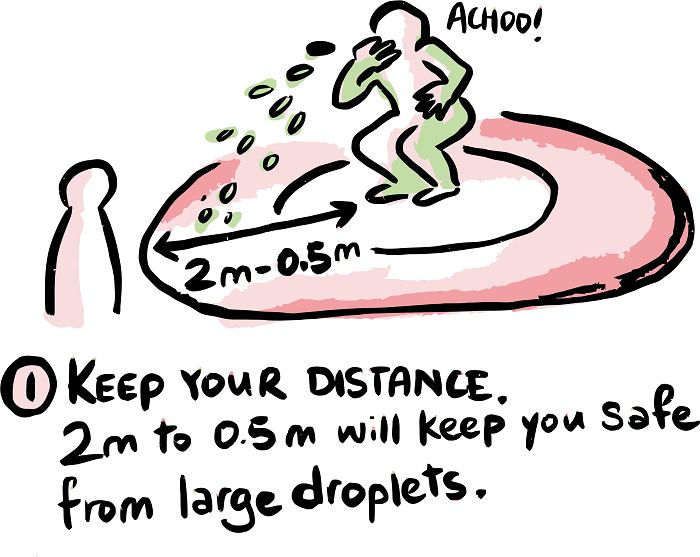 ACHOO!
2m-0.5m
1 KEEP YOUR DISTANCE.
2m to 0.5m will keep you safe
from large droplets.